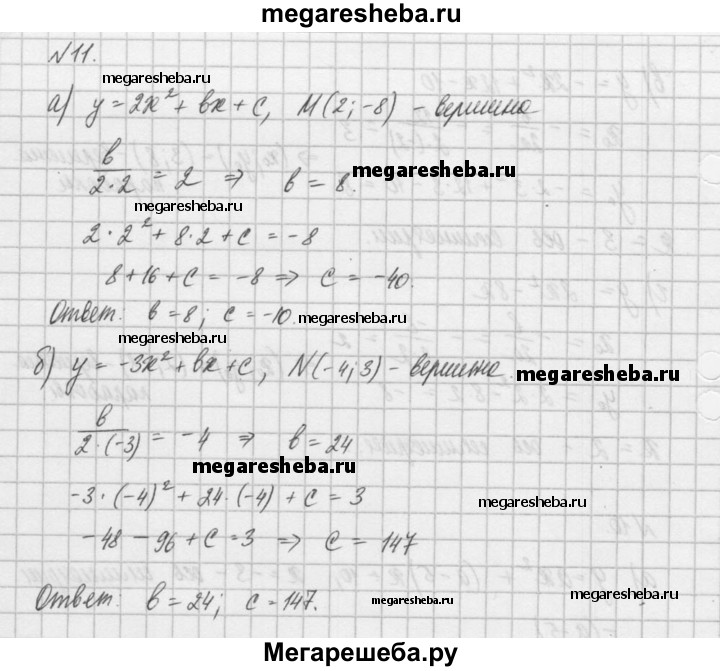 megaresheba.ru
№11.
megaresheba.ru
а) y = 2x² + вx + c, М(2; -8) - вершина
в/(2·2) = 2 ⇒ в = 8.
megaresheba.ru
megaresheba.ru
2·2² + 8·2 + c = -8
8 + 16 + c = -8 ⇒ c = -40.
Ответ: в = 8; c = -10.
megaresheba.ru
megaresheba.ru
megaresheba.ru
б) y = -3x² + вx + c, N(-4; 3) - вершина
megaresheba.ru
в/(2·(-3)) = -4 ⇒ в = 24
megaresheba.ru
-3·(-4)² + 24·(-4) + c = 3
megaresheba.ru
-48 - 96 + c = 3 ⇒ c = 147
Ответ: в = 24; c = 147.
megaresheba.ru
megaresheba.ru
Мегарешеба.ру